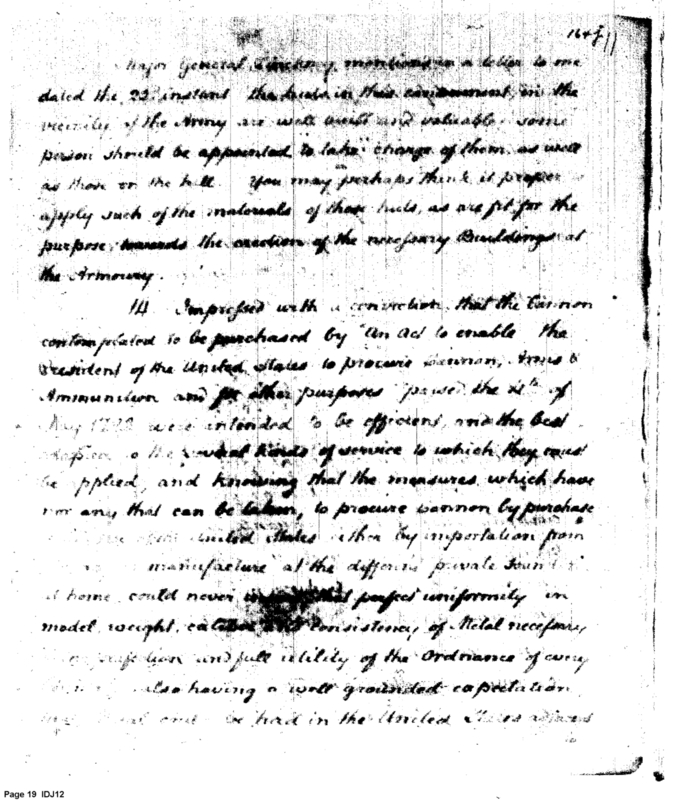 164
Major General Pinckney mentions in a letter to me
dated the 22d instant the huts in this cantonment, in the
vicinity of the Army are well built and valuable. some
person should be appointed to take charge of them, as well
as those on the hill. You may perhaps think it proper
apply such of the materials of those huts, as are fit for the
purpose towards the erection of the necessary Buildings at
the Armoury.
14 Impressed with a conviction, that the Cannon
contemplated to be purchased by "An Act to enable the
President of the United States to procure Cannon, Arms &
Ammunition and for other purposes" passed the of
May were intended to be efficient, and the best
adapted to the several kinds of service to which they must
be applied, and knowing that the measures, which have
nor any that can be taken, to procure cannon by purchase
United States either by importation from
manufacture at the different private
at home, could never that perfect uniformity in
model, weight, calibre and consistency of Metal necessary
and full utility of the Ordnance of every
also having a well grounded expectation
be had in the United States
Page 19 IDJ12